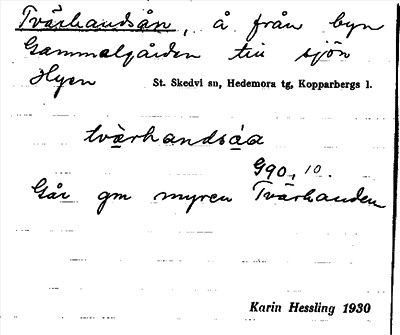 Tvärhandsån, å från byn
Gammalgården till sjön
Hyen St. Skedvi sn, Hedemora tg, Kopparbergs l.
tvärhandsåa
G90, 10.
Går gm myren Tvärhanden
Karin Hessling 1930